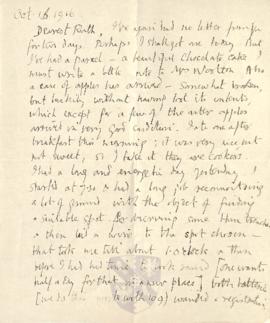 Oct 16 1916
Dearest Ruth, I've again had no letter from you
for two days. Perhaps I shall get one today. But
I've had a parcel – a beautiful chocolate cake! I
must write a little note to Mrs Morton. Also
a case of apples has arrived – somewhat broken,
but luckily without having lost its contents,
which except for a few of the outer apples
arrived in very good condition. I ate one after
breakfast this morning; it was very nice but
not sweet, so I take it they are cookers.
I had a long and energetic day yesterday. I
started at 7.30 & had a long job reconnoitring
a lot of ground with the object of finding
a suitable spot for
& then had a
to the spot chosen –
that took me till about 1 o'clock & then
before I had had time to
[one wants
half a day for that in a new place] both batteries
[we do this work with 109] wanted a registration